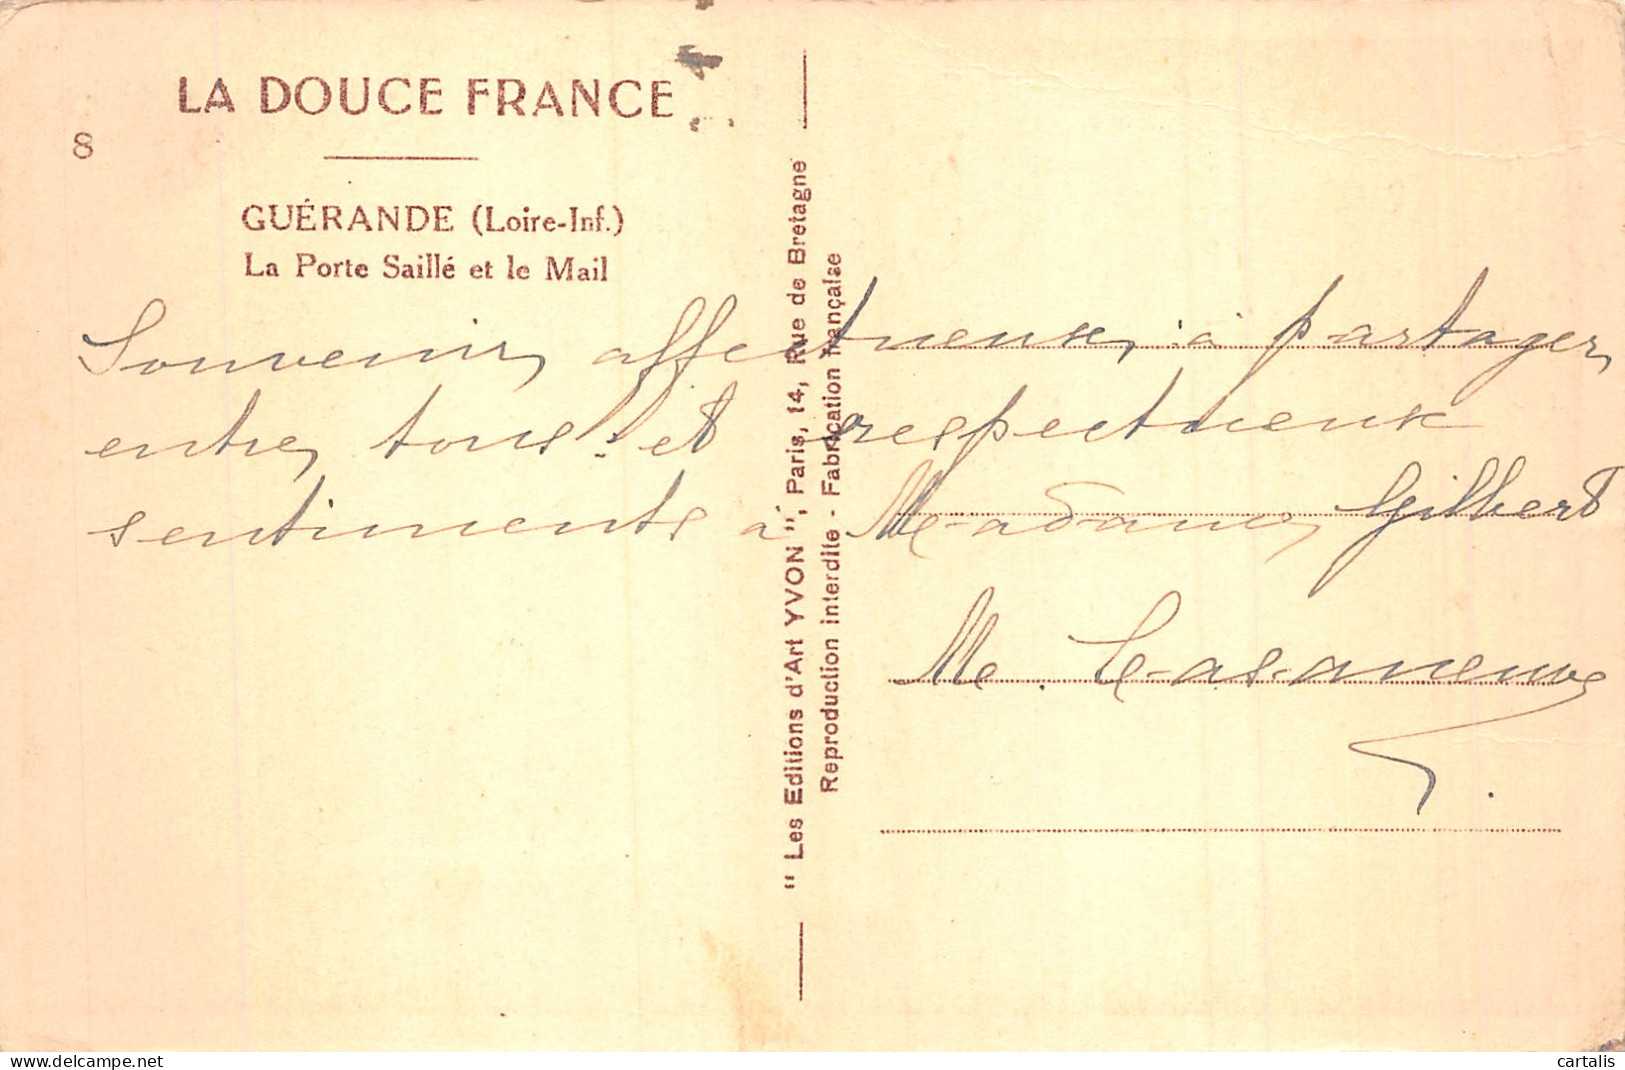 LA DOUCE FRANCE
8
GUÉRANDE (Loire-Inf.)
La Porte Saillé et le Mail
Souvenir affectueux à partager
entre tous et respectueux
sentiments à Madame Gilbert
M.
"Les Editions d'Art YVON", Paris, 14, Rue de Bretagne
Reproduction interdite - Fabrication française
delcampe.net
cartalis